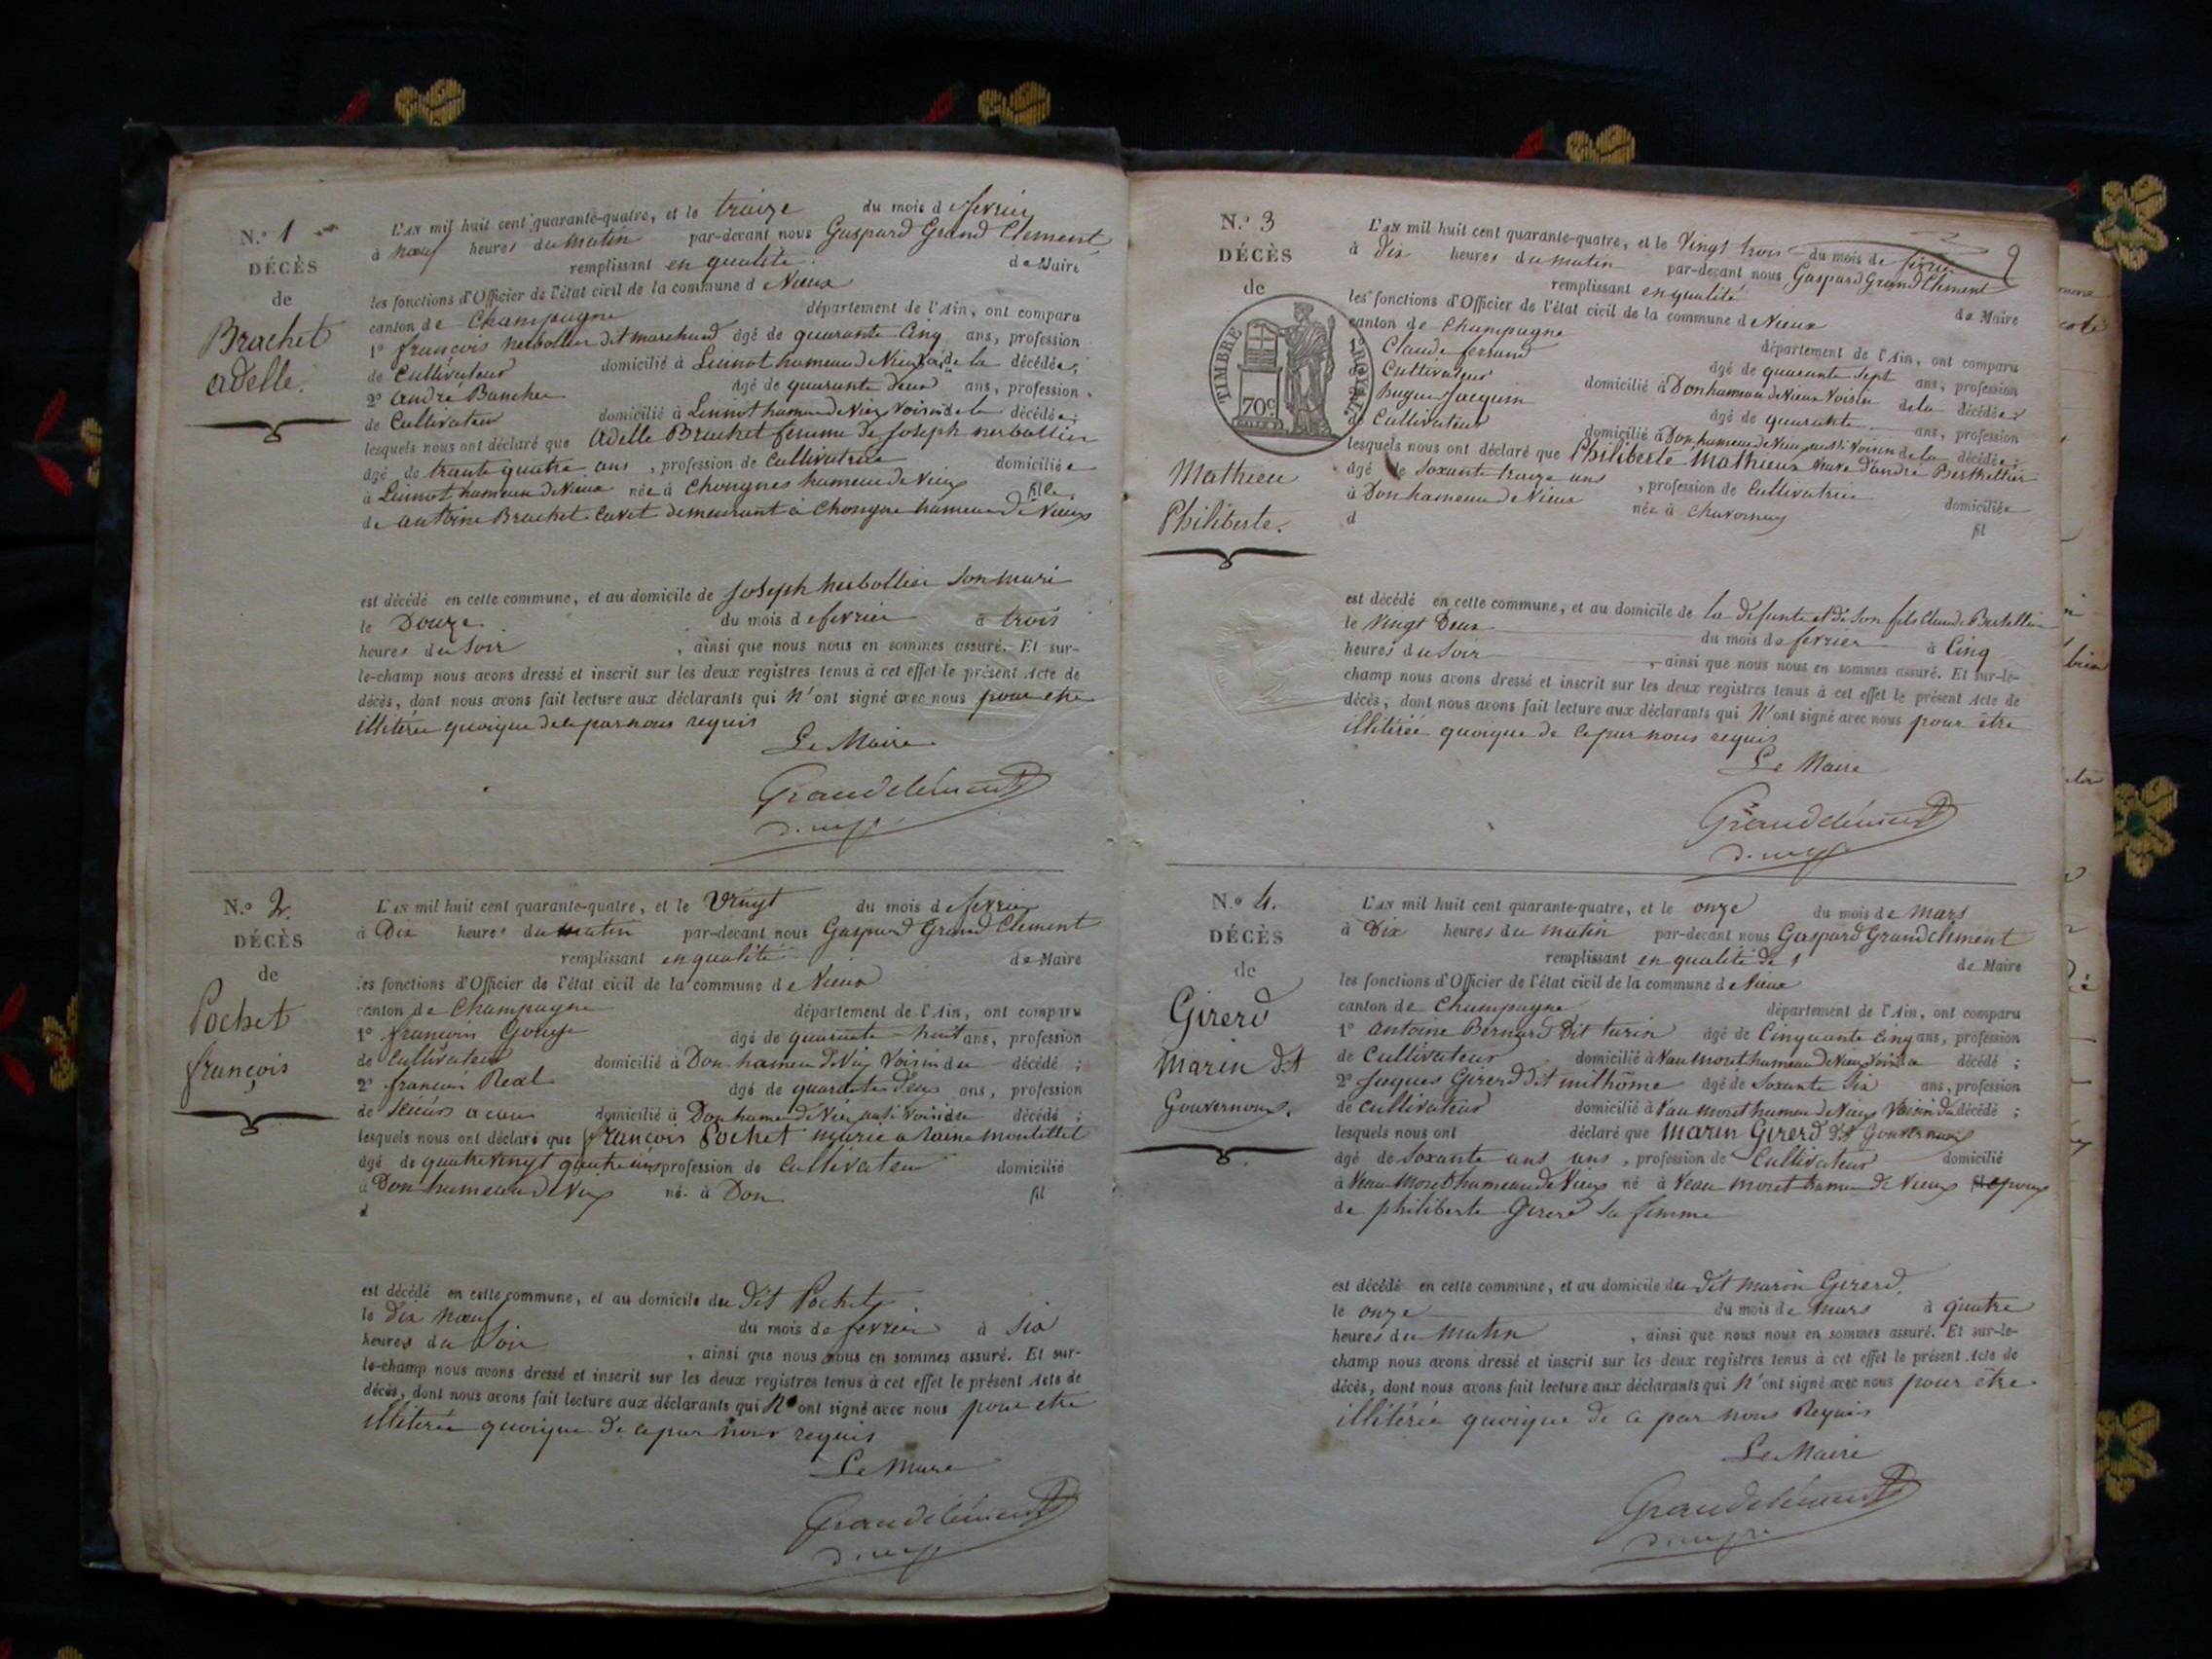 N.º 1
DÉCÈS
de
Brachet
adelle.
L'AN mil huit cent quarante-quatre, et le treize du mois de fevrier
à nœuf heures du matin par-devant nous Gaspard Grand Clement
remplissant en qualité de Maire
les fonctions d'Officier de l'état civil de la commune de Vieux
canton de Champagne département de l'Ain, ont comparu
1º françois herbollier dit marchand âgé de quarante Cinq ans, profession
de Cultivateur domicilié à Linnot hameau de Vieux de la décédée;
2º andré Bancher âgé de quarante deux ans, profession
de Cultivateur domicilié à Linnot hameau de Vieux Voisin de la décédée;
lesquels nous ont déclaré que Adelle Brachet femme de joseph herbollier
âgé de trante quatre ans, profession de Cultivatrice domiciliée
à Linnot hameau de Vieux née à Chongnes hameau de Vieux fille
de antoine Brachet Cavet demeurant à Chongne hameau de Vieux
est décédé en cette commune, et au domicile de joseph herbollier son mari
le Douze du mois de fevrier à trois
heures du soir, ainsi que nous nous en sommes assuré. Et sur-
le-champ nous avons dressé et inscrit sur les deux registres tenus à cet effet le présent Acte de
décès, dont nous avons fait lecture aux déclarants qui N'ont signé avec nous pour etre
illiterée quoique de ce par nous requis
Le Maire
Grandclément
N.º 2.
DÉCÈS
de
Pochet
françois
L'AN mil huit cent quarante-quatre, et le Vingt du mois de fevrier
à Dix heures du matin par-devant nous Gaspard Grand Clement
remplissant en qualité de Maire
les fonctions d'Officier de l'état civil de la commune de Vieux
canton de Champagne département de l'Ain, ont comparu
1º françois Gouge âgé de quarante huit ans, profession
de Cultivateur domicilié à Don hameau de Vieux Voisin du décédé;
2º françois Réal âgé de quarante deux ans, profession
de domicilié à Don hameau de Vieux aussi Voisin du décédé;
lesquels nous ont déclaré que françois Pochet marié a montillet
âgé de quatre vingt quatre ans profession de Cultivateur domicilié
à Don hameau de Vieux né à Don fil
d
est décédé en cette commune, et au domicile du Dit Pochet
le Dix nœuf du mois de fevrier à Six
heures du Soir, ainsi que nous nous en sommes assuré. Et sur-
le-champ nous avons dressé et inscrit sur les deux registres tenus à cet effet le présent Acte de
décès, dont nous avons fait lecture aux déclarants qui N'ont signé avec nous pour etre
illiterée quoique de ce par nous requis
Le Maire
Grandclément
N.º 3
DÉCÈS
de
TIMBRE ROYAL
70 c
Mathieu
Philiberte.
L'AN mil huit cent quarante-quatre, et le Vingt trois du mois de fevrier
à Dix heures du matin par-devant nous Gaspard Grand Clement
remplissant en qualité de Maire
les fonctions d'Officier de l'état civil de la commune de Vieux
canton de Champagne département de l'Ain, ont comparu
1º Claude ferrand âgé de quarante sept ans, profession
Cultivateur domicilié à Don hameau de Vieux Voisin de la décédée
hugue jacquin âgé de quarante ans, profession
de Cultivateur domicilié à Don hameau de Vieux aussi Voisin de la décédée;
lesquels nous ont déclaré que Philiberte Mathieux Veuve d'andré Berthellier
âgé de soxante traize ans, profession de Cultivatrice domiciliée
à Don hameau de Vieux née à Chavornay fil
d
est décédé en cette commune, et au domicile de la défunte et de son fils Claude Berthellier
le Vingt Deux du mois de fevrier à Cinq
heures du Soir, ainsi que nous nous en sommes assuré. Et sur-le-
champ nous avons dressé et inscrit sur les deux registres tenus à cet effet le présent Acte de
décès, dont nous avons fait lecture aux déclarants qui N'ont signé avec nous pour être
illitérée quoique de ce par nous requis
Le Maire
Grandclément
N.º 4.
DÉCÈS
de
Girerd
Marin dit
Gouvernoux.
L'AN mil huit cent quarante-quatre, et le onze du mois de Mars
à Dix heures du matin par-devant nous Gaspard Grand clement
remplissant en qualité de Maire
les fonctions d'Officier de l'état civil de la commune de Vieux
canton de Champagne département de l'Ain, ont comparu
1º antoine Bernard Dit turin âgé de Cinquante Cinq ans, profession
de Cultivateur domicilié à Vau moret hameau de Vieux Voisin décédé;
2º Jaques Girerd dit milhôme âgé de Soxante Six ans, profession
de cultivateur domicilié à Vau moret hameau de Vieux Voisin du décédé;
lesquels nous ont déclaré que Marin Girerd dit Gouvernoux
âgé de Soxante ans ans, profession de Cultivateur domicilié
à Veau Moret hameau de Vieux né à Veau moret hameau de Vieux epoux
de philiberte Girerd sa femme
est décédé en cette commune, et au domicile du dit marin Girerd.
le onze du mois de Mars à quatre
heures du Matin, ainsi que nous nous en sommes assuré. Et sur-le-
champ nous avons dressé et inscrit sur les deux registres tenus à cet effet le présent Acte de
décès, dont nous avons fait lecture aux déclarants qui N'ont signé avec nous pour être
illitérée quoique de ce par nous Requis
Le Maire
Grandclément